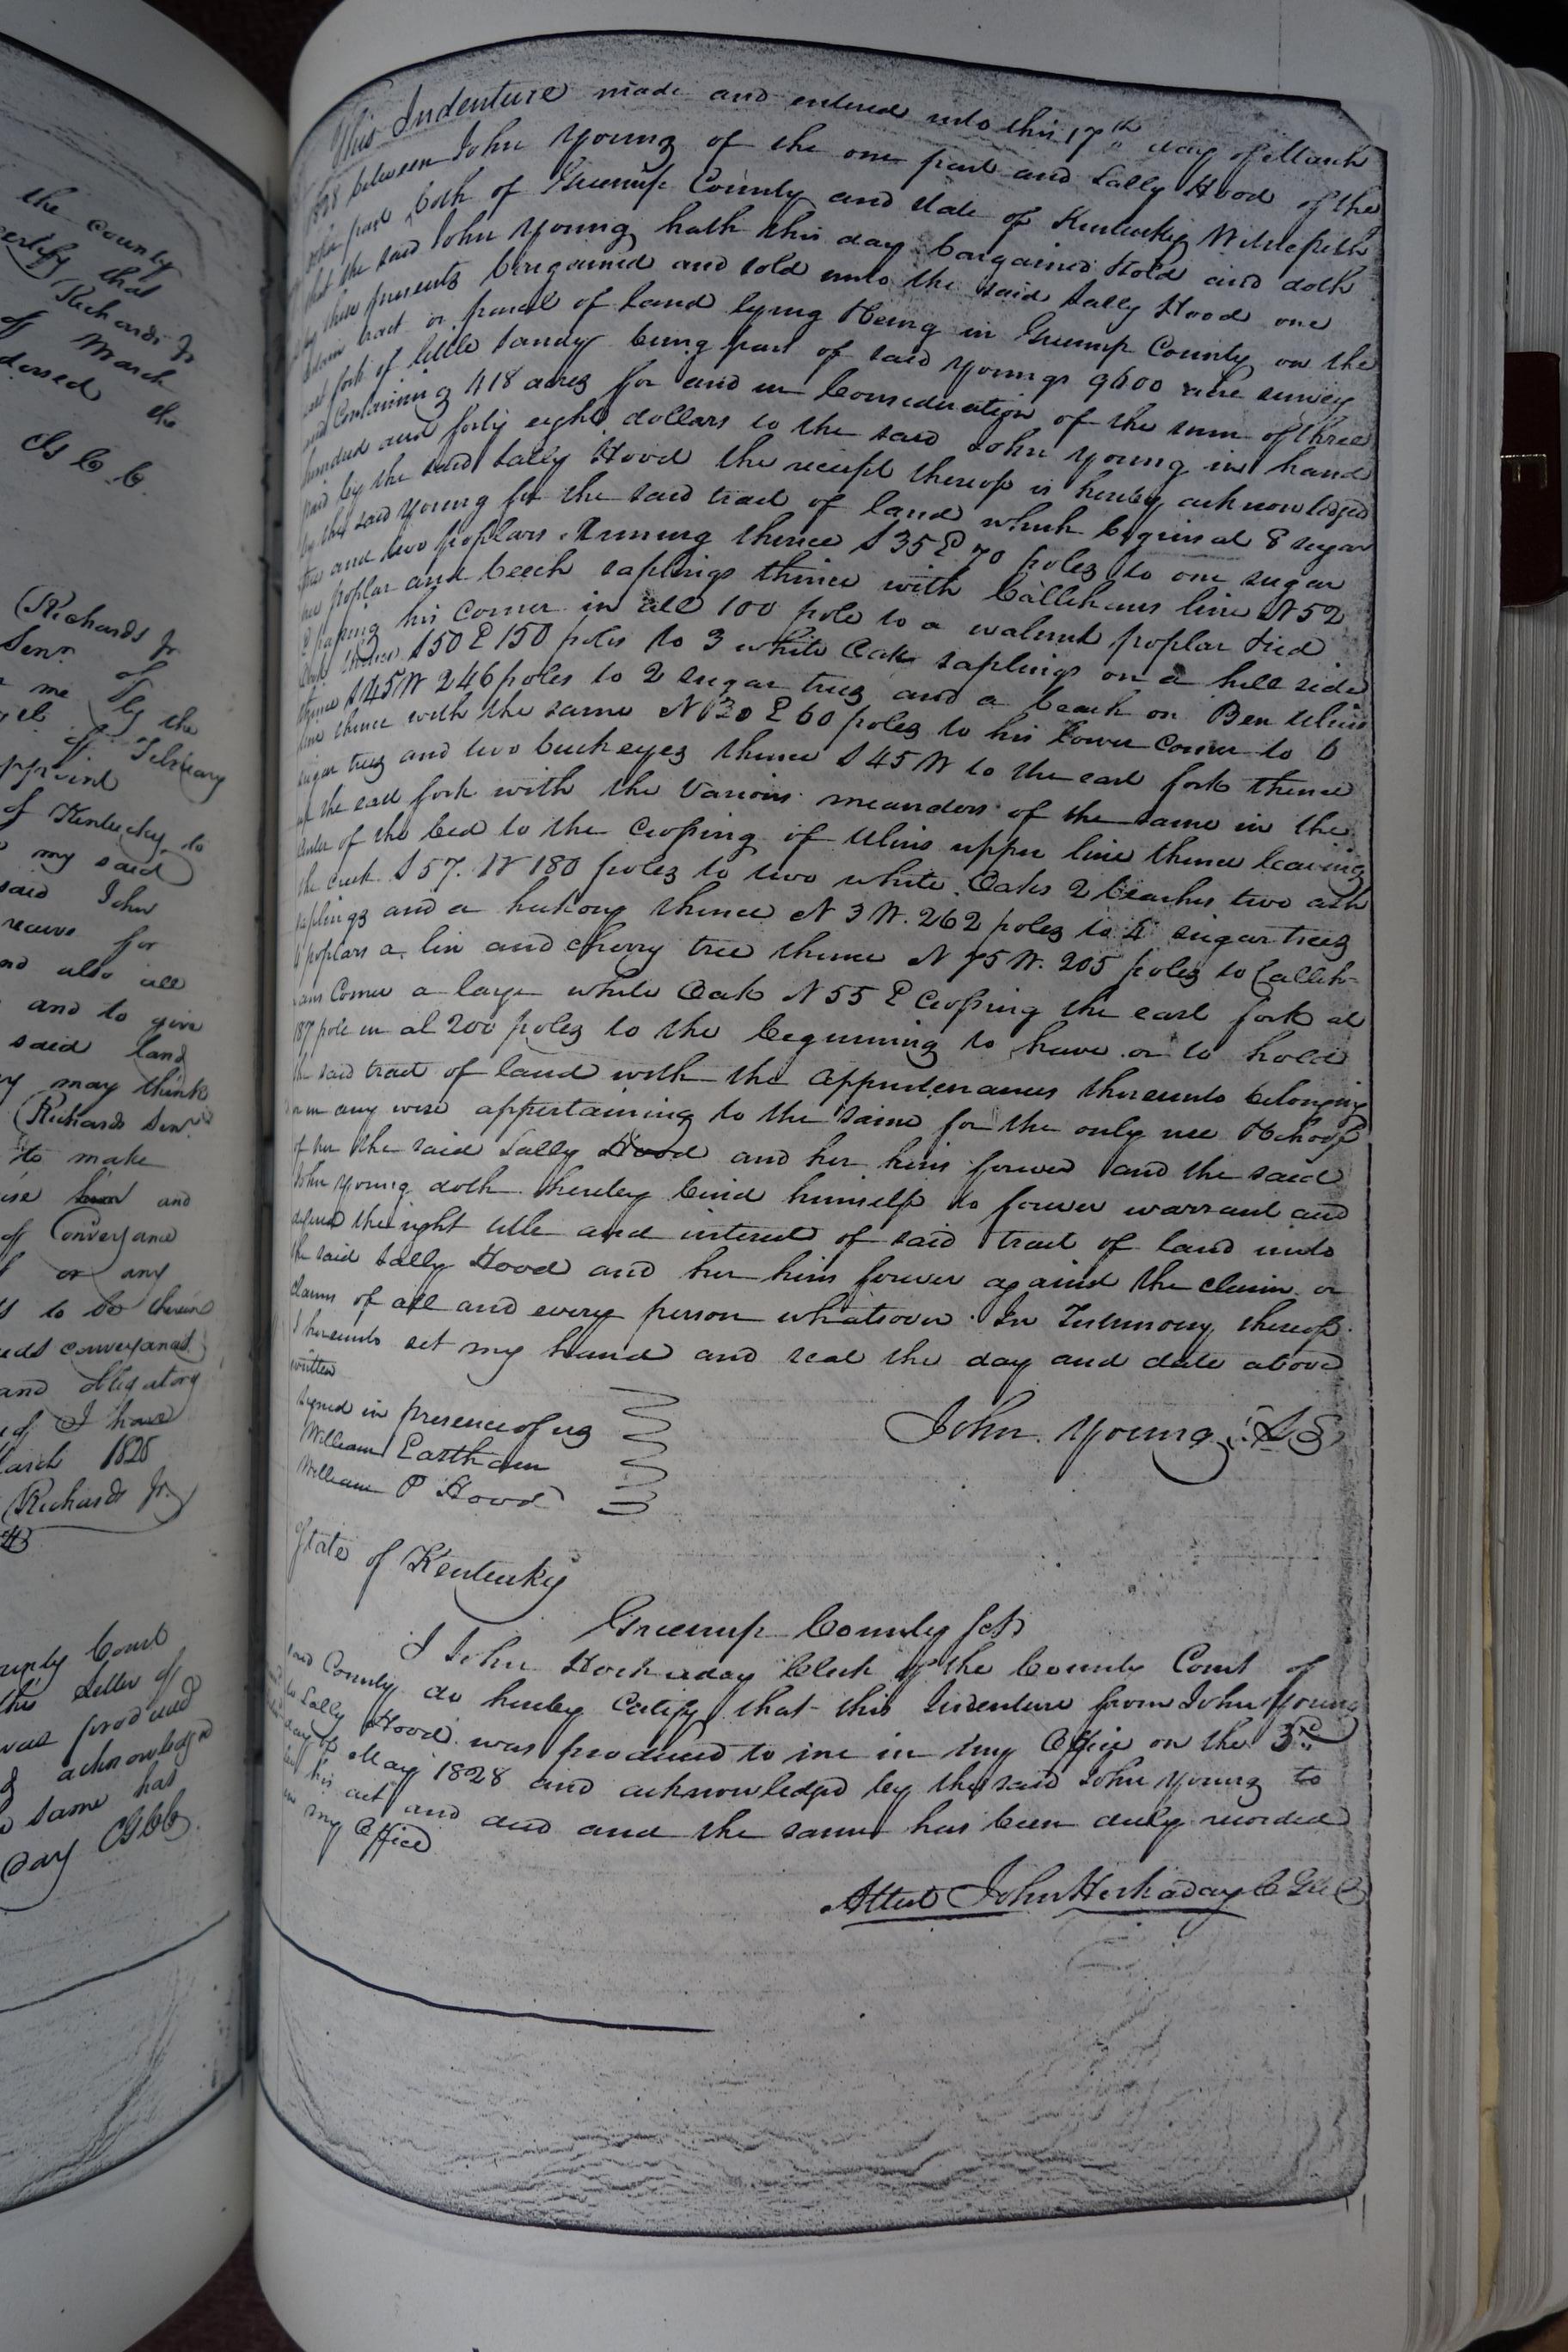 the County
certify that
Richards Jr
of March
dorsed the
Cs C. C.
Richards Jr
Senr of
me by the
of February
of Kentucky to
my said
said John
receive for
and also all
and to give
said land
may think
Richards Senr
to make
and
of Conveyance
or any
to be therein
conveyances
and obligatory
I have
March 1828
Richards Jr
County Court
this Letter of
was produced
acknowledged
same has
day CGCC
This Indenture made and entered into this 17th day of March
1828 between John Young of the one part and Sally Hood of the
other part both of Greenup County and state of Kentucky Witnesseth
that the said John Young hath this day bargained & sold and doth
by these presents bargained and sold unto the said Sally Hood one
certain tract or parcel of land lying & being in Greenup County on the
east fork of little Sandy being part of said Youngs 9600 acre survey
and Containing 418 acres for and in Consideration of the sum of three
hundred and forty eight dollars to the said John Young in hand
paid by the said Sally Hood the receipt thereof is hereby acknowledged
by the said Young for the said tract of land which begins at 8 sugar
tree and two poplars Running thence S 35 E 70 poles to one sugar
one poplar and beech saplings thence with Callihans line N 52
E passing his corner in all 100 pole to a walnut poplar & red
Oak thence S 50 E 150 poles to 3 white Oak saplings on a hill side
thence S 45 W 246 poles to 2 sugar trees and a beach on Ben Ulins
line thence with the same N 30 E 60 poles to his lower corner to 6
sugar trees and two buckeyes thence S 45 W to the east fork thence
up the east fork with the Various meanders of the same in the
center of the bed to the Crossing of Ulins upper line thence leaving
the creek S 57. W 180 poles to two white Oaks 2 beaches two ash
saplings and a hickory thence N 3 W. 262 poles to 4 sugar trees
6 poplars a lin and cherry tree thence N 75 W. 205 poles to Callih-
ans Corner a large white Oak N 55 E Crossing the east fork at
187 pole in al 200 poles to the beginning to have or to hold
the said tract of land with the appurtenances thereunto belonging
or in any wise appertaining to the same for the only use & behoof
of her the said Sally Hood and her heirs forever and the said
John Young doth hereby bind himself to forever warrant and
defend the right title and interest of said tract of land unto
the said Sally Hood and her heirs forever against the claim or
claims of all and every person whatsover. In Testimony thereof
I hereunto set my hand and seal the day and date above
written
signed in presence of us
John Young LS
William Eastham
William P Hood
State of Kentucky
Greenup County Sct
I John Hockaday Clerk of the County Court of
said County do hereby Certify that this Indenture from John Young
to Sally Hood was produced to me in my Office on the 3rd
day of May 1828 and acknowledged by the said John Young to
be his act and deed and the same has been duly recorded
in my Office
Attest John Hockaday C G C C